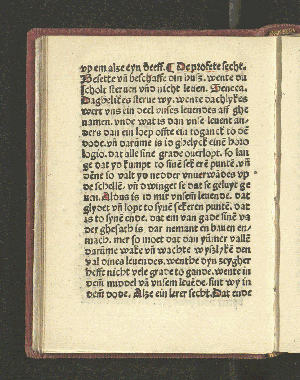 vp em alze eyn deeff. ¶ De profete secht.
Besette vn̄ beschaffe din husz. wente du
scholt steruen vn̄ nicht leuen. Seneca.
Daghelikes sterue wy. wente dachlykes
wert vns ein deel vnses leuendes aff ghe
namen. vnde wat is dan vnse leuent an⸗
ders dan ein loep offte ein toganck to dē
dode. vn̄ darūme is id ghelyck eine horo
logio. dat alle sine grade ouerlopt. so lan
ge dat yd kumpt to sinē erē puntē. vn̄
dēne so valt yd nedder vnuerwādes vp
de schellē. vn̄ dwinget se dat se geluyt ge
uen. Aldus is id mit vnsem leuende. dat
glydet vn̄ lopt to synē sekeren puntē. dat
is to synē ende. dat em van gade sinē va
der ghesath is. dar nemant en bauen en⸗
mach. mer so moet dat dan yūmer vallē
darūme wake vn̄ wachte wyszlikē den
val dines leuendes. wenthe dyn seygher
hefft nicht vele grade to gande. wente in
dem middel vā vnsem leuēde. sint wy in
dem dode. Alze ein lerer secht. Dat ende